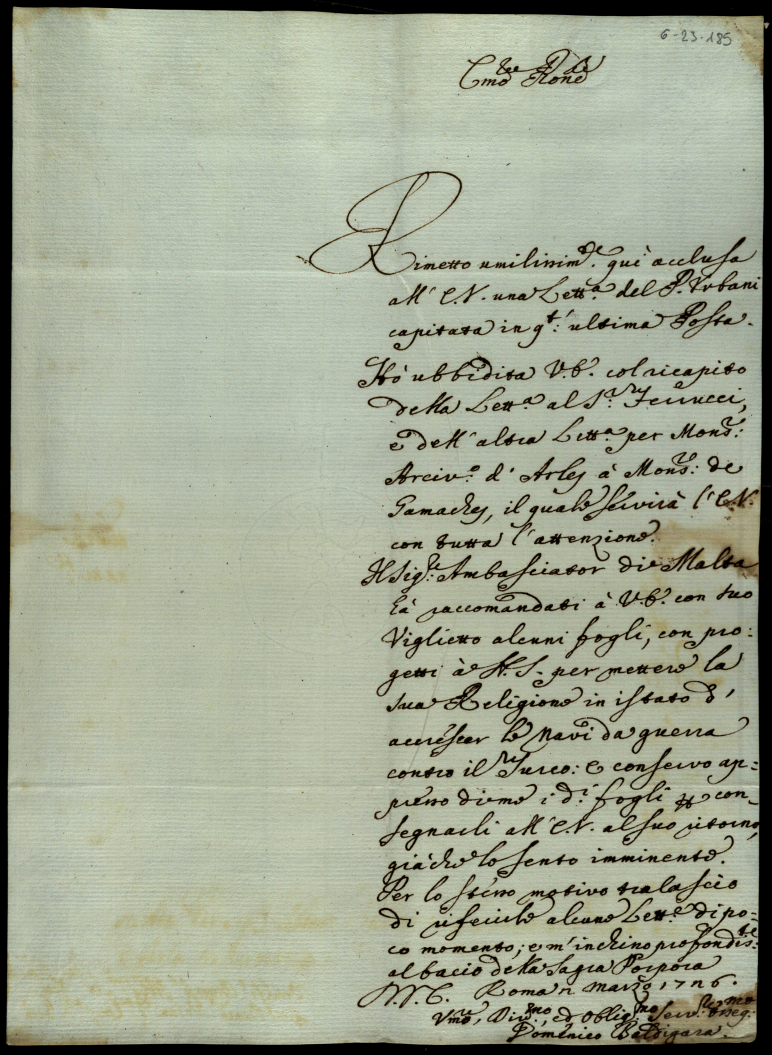 6-23-185
Em̃o Rev̄e
Rimetto umilissim.te quì acclusa
all' E.V. una Lett.a del P. Urbani
capitata in q.t: ultima Posta.
Hò ubbidita V.E. col ricapito
della Lett.a al S.r Ferrucci,
e dell' altra Lett.a per Mons.r:
Arciv.o d' Arles à Mons.r: de
Gamaches, il quale servirà l' E.V.
con tutta l' attenzione.
Il Sig.r: Ambasciator di Malta
hà raccomandati à V.E. con suo
Viglietto alcuni fogli, con pro:
getti à N.S. per mettere la
sua Religione in istato d'
accrescer le Navi da guerra
contro il Turco: e conservo ap:
presso di me i d.i fogli per con:
segnarli all' E.V. al suo ritorno,
già che lo sento imminente.
Per lo stesso motivo tralascio
di riferirle alcune Lett.e di po:
co momento; e m' inchino profondis:te
al bacio della Sagra Porpora
D.V.E. Roma 2 Marzo 1726.
Vmo, Div.mo, ed Oblig.mo Serv.re osseq:mo
Domenico Baldigara.